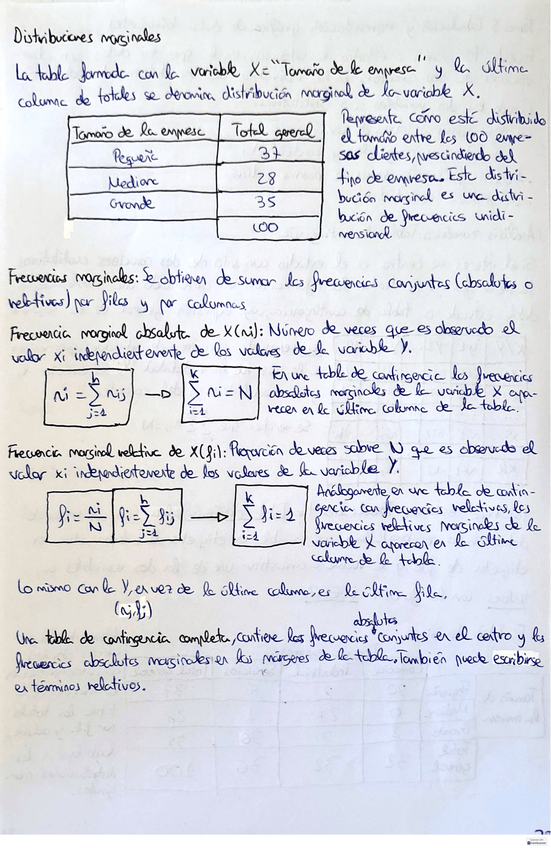 Distribuciones marginales
La tabla formada con la variable X="Tamaño de la empresa" y la última
columna de totales se denomina distribución marginal de la variable X.
Tamaño de la empresa Total general
Pequeña 37
Mediana 28
Grande 35
100
Representa cómo está distribuido
el tamaño entre las 100 empre-
sas clientes, prescindiendo del
tipo de empresa. Esta distri-
bución marginal es una distri-
bución de frecuencias unidi-
mensional
Frecuencias marginales: Se obtienen de sumar las frecuencias conjuntas (absolutas o
relativas) por filas y por columnas
Frecuencia marginal absoluta de X(ni): Número de veces que es observado el
valor xi independientemente de los valores de la variable Y.
ni = ∑_{j=1}^{h} nij → ∑_{i=1}^{k} ni = N
En una tabla de contingencia las frecuencias
absolutas marginales de la variable X apa-
recen en la última columna de la tabla.
Frecuencia marginal relativa de X(fi): Proporción de veces sobre N que es observado el
valor xi independientemente de los valores de la variable Y.
fi = ni/N fi = ∑_{j=1}^{h} fij → ∑_{i=1}^{k} fi = 1
Análogamente, en una tabla de contin-
gencia con frecuencias relativas, las
frecuencias relativas marginales de la
variable X aparecen en la última
columna de la tabla.
Lo mismo con la Y, en vez de la última columna, es la última fila,
(nj, fj)
Una tabla de contingencia completa, contiene las frecuencias absolutas conjuntas en el centro y las
frecuencias absolutas marginales en los márgenes de la tabla. También puede escribirse
en términos relativos.